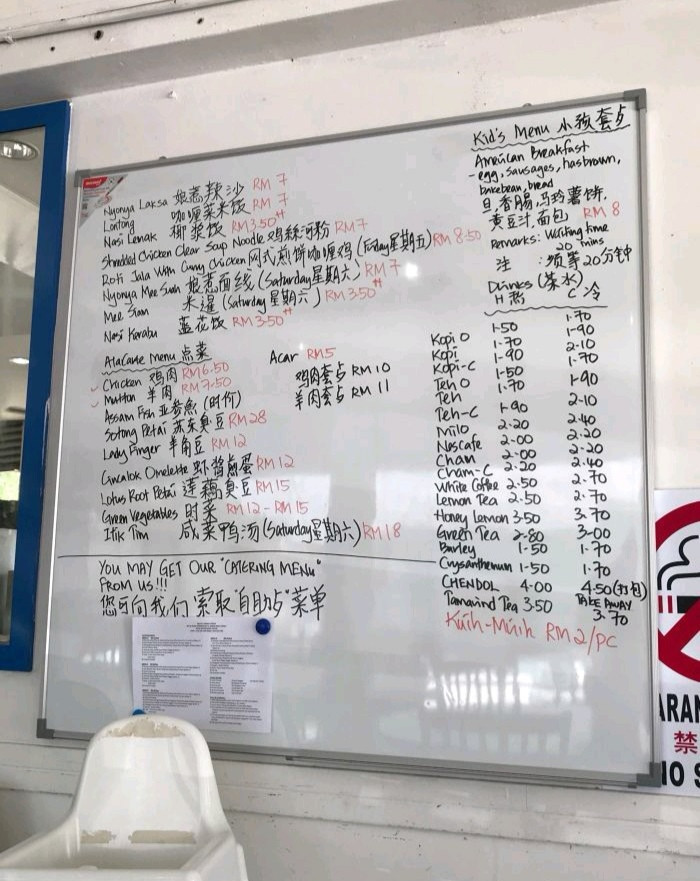 Kid's Menu 小孩套餐
American Breakfast
- egg, sausages, hasbrown,
bakebean, bread
旦, 香肠, 马铃薯饼,
黄豆汁, 面包 RM 8
Remarks: Waiting time
20 mins
注 : 须等20分钟
Nyonya Laksa 娘惹辣沙 RM 7
Lontong 咖喱菜米饭 RM 7
Nasi Lemak 椰浆饭 RM3.50++
Shredded Chicken Clear Soup Noodle 鸡丝河粉 RM 7
Roti Jala With Curry Chicken 网式煎饼咖喱鸡 (Friday星期五) RM 8.50
Nyonya Mee Suah 娘惹面线 (Saturday星期六) RM 7
Mee Siam 米暹 (Saturday星期六) RM 3.50++
Nasi Kerabu 蓝花饭 RM 3.50++
AlaCarte Menu 点菜
Chicken 鸡肉 RM 6.50
Mutton 羊肉 RM 7.50
Assam Fish 亚参鱼 (时价)
Sotong Petai 苏东臭豆 RM 28
Lady Finger 羊角豆 RM 12
Cincalok Omelette 虾酱煎蛋 RM 12
Lotus Root Petai 莲藕臭豆 RM 15
Green Vegetables 时菜 RM 12 - RM 15
Itik Tim 咸菜鸭汤 (Saturday星期六) RM 18
Acar RM5
鸡肉套餐 RM 10
羊肉套餐 RM 11
Drinks (茶水)
H 热 C 冷
Kopi O 1-50 1-70
Kopi 1-70 1-90
Kopi-C 1-90 2-10
Teh O 1-50 1-70
Teh 1-70 1-90
Teh-C 1-90 2-10
Milo 2-40
Nescafe 2-00 2-20
Cham 2-00 2-20
Cham-C 2-20 2-40
White Coffee 2-50 2-70
Lemon Tea 2-50 2-70
Honey Lemon 3-50 3-70
Green Tea 2-80 3-00
Barley 1-50 1-70
Crysanthemum 1-50 1-70
CHENDOL 4-00 4-50 (打包)
TAKE AWAY
Tamarind Tea 3-50 3-70
Kuih-Muih RM 2/PC
YOU MAY GET OUR "CATERING MENU"
FROM US!!!
您可向我们索取"自助餐"菜单
禁